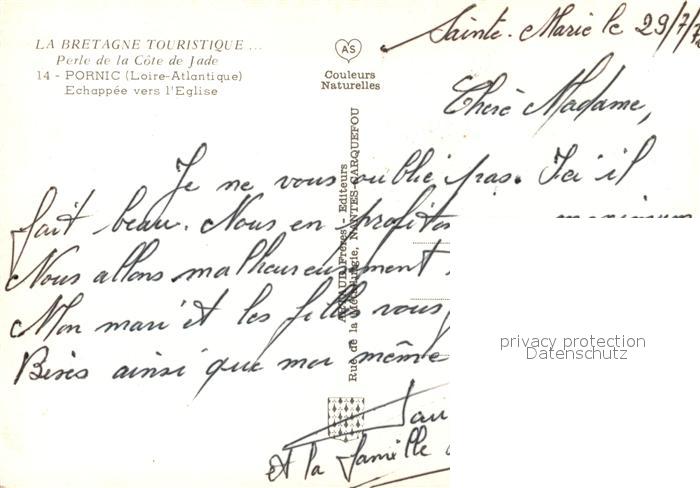 LA BRETAGNE TOURISTIQUE ...
Perle de la Côte de Jade
14 - PORNIC (Loire-Atlantique)
Echappée vers l'Eglise
AS
Couleurs
Naturelles
Frères - Editeurs
Rue de la Métallurgie, NANTES-CARQUEFOU
Sainte-Marie le 29/7/
Chère Madame,
Je ne vous oublie pas. Ici il
fait beau. Nous en profitons
Nous allons malheureusement
Mon mari et les filles vous
Bises ainsi que moi même
et la famille
privacy protection
Datenschutz